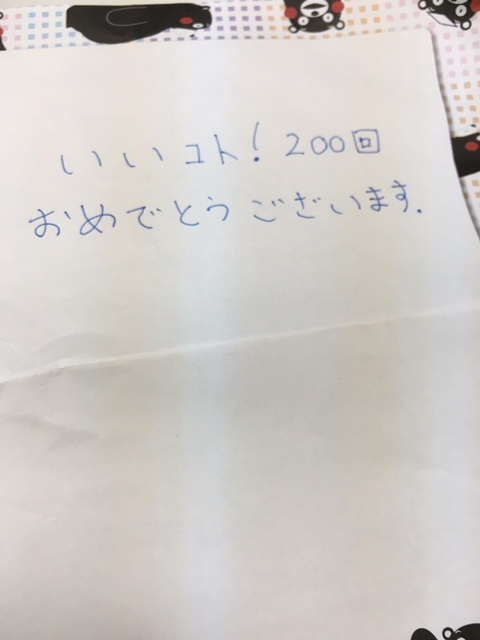 いいコト！200回
おめでとうございます.